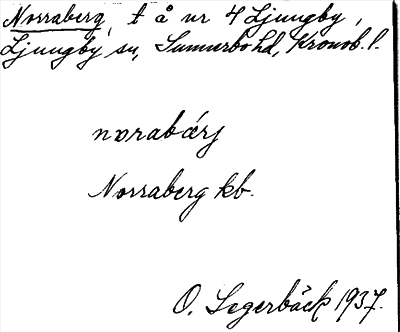 Norraberg, t å nr 4 Ljungby,
Ljungby sn, Sunnerbo hd, Kronob. l.
norabárj
Norraberg kb.
O. Segerbäck 1937.